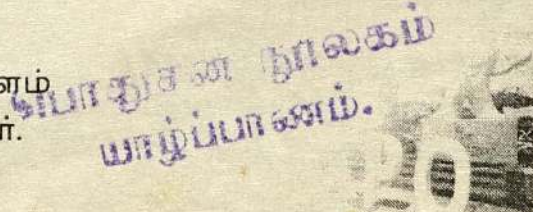 ளம்
ர்.
பொதுசன நூலகம்
யாழ்ப்பாணம்.
20